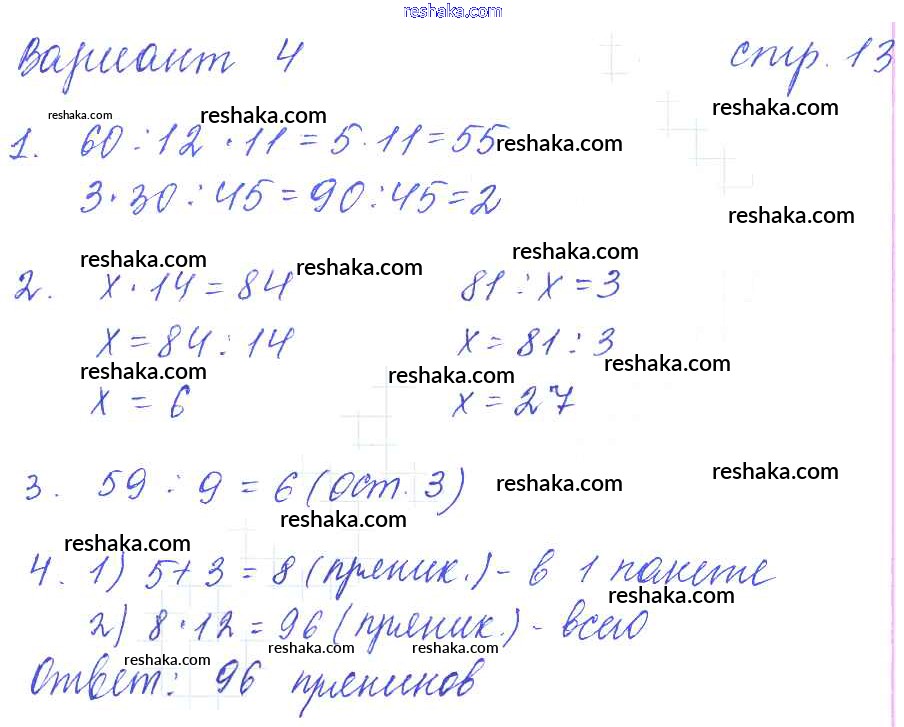 reshaka.com
Вариант 4 стр. 13
reshaka.com reshaka.com reshaka.com
1. 60 : 12 · 11 = 5 · 11 = 55 reshaka.com
3 · 30 : 45 = 90 : 45 = 2
reshaka.com
reshaka.com reshaka.com reshaka.com
2. x · 14 = 84 81 : x = 3
x = 84 : 14 x = 81 : 3
reshaka.com reshaka.com reshaka.com
x = 6 x = 27
3. 59 : 9 = 6 (ост. 3) reshaka.com reshaka.com
reshaka.com
reshaka.com
4. 1) 5 + 3 = 8 (пряник.) - в 1 пакете
reshaka.com
2) 8 · 12 = 96 (пряник.) - всего
reshaka.com reshaka.com reshaka.com
Ответ: 96 пряников